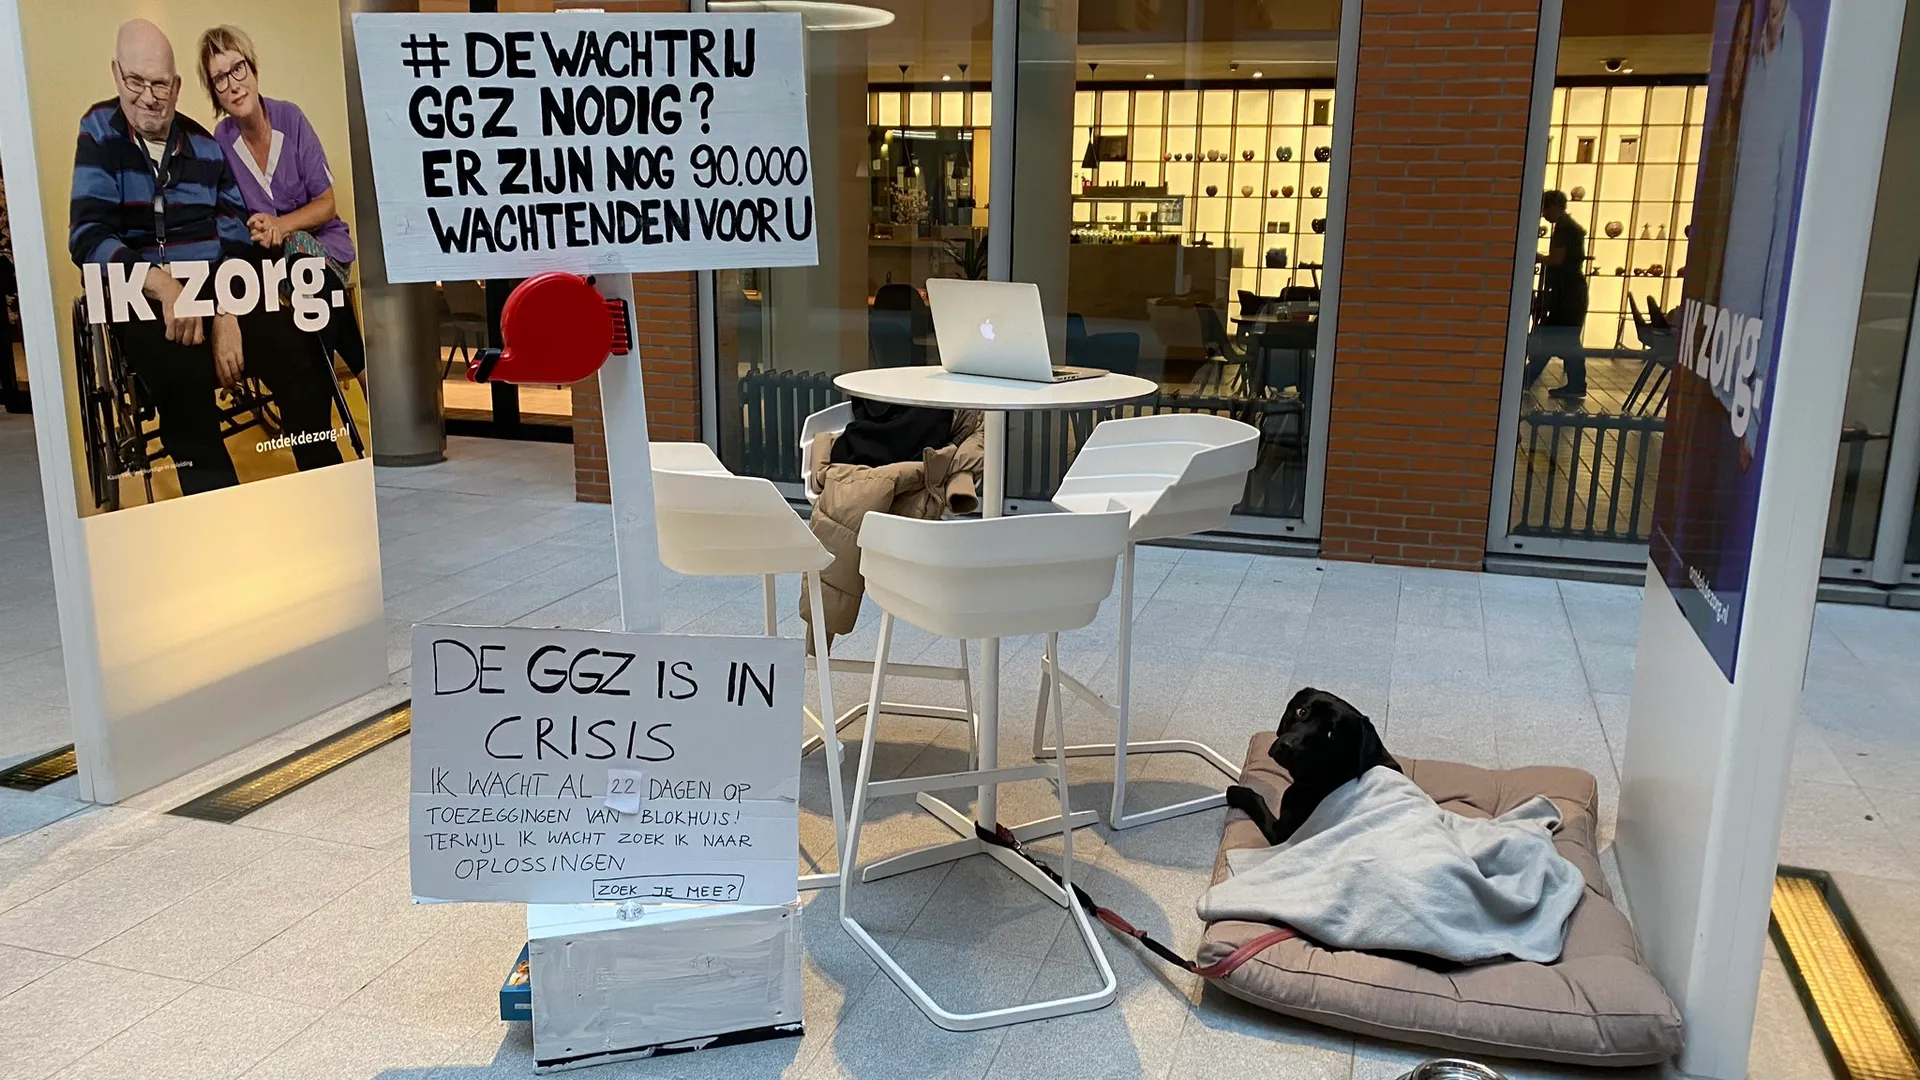 # DE WACHTRIJ
GGZ NODIG?
ER ZIJN NOG 90.000
WACHTENDEN VOOR U
IK zorg.
ontdekdezorg.nl
DE GGZ IS IN
CRISIS
IK WACHT AL 22 DAGEN OP
TOEZEGGINGEN VAN BLOKHUIS!
TERWIJL IK WACHT ZOEK IK NAAR
OPLOSSINGEN
ZOEK JE MEE?
IK zorg.
ontdekdezorg.nl